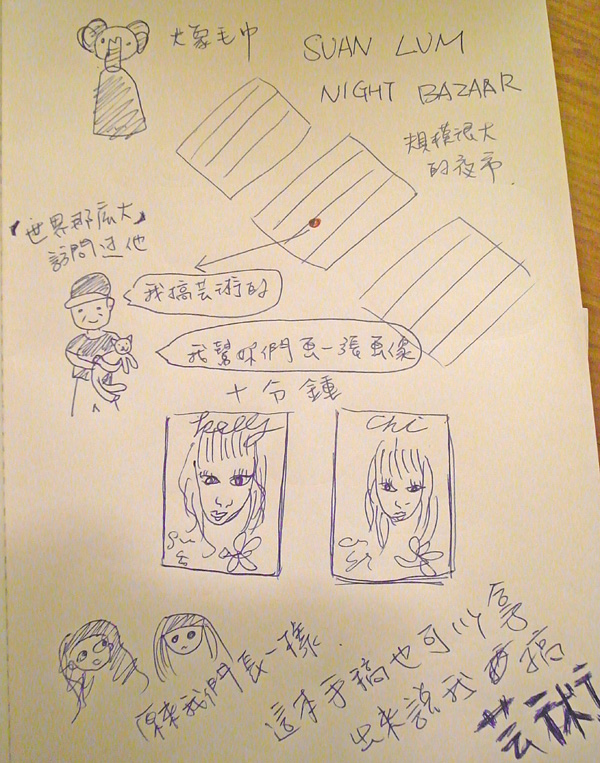 大象毛巾
SUAN LUM
NIGHT BAZAAR
規模很大
的夜市
「世界那麼大」
訪問过他
我搞芸術的
我幫妳們画一張画像
十分鍾
Kelly
Chi
原來我們長一樣
這本手稿也可以拿
出來說我再搞
芸術